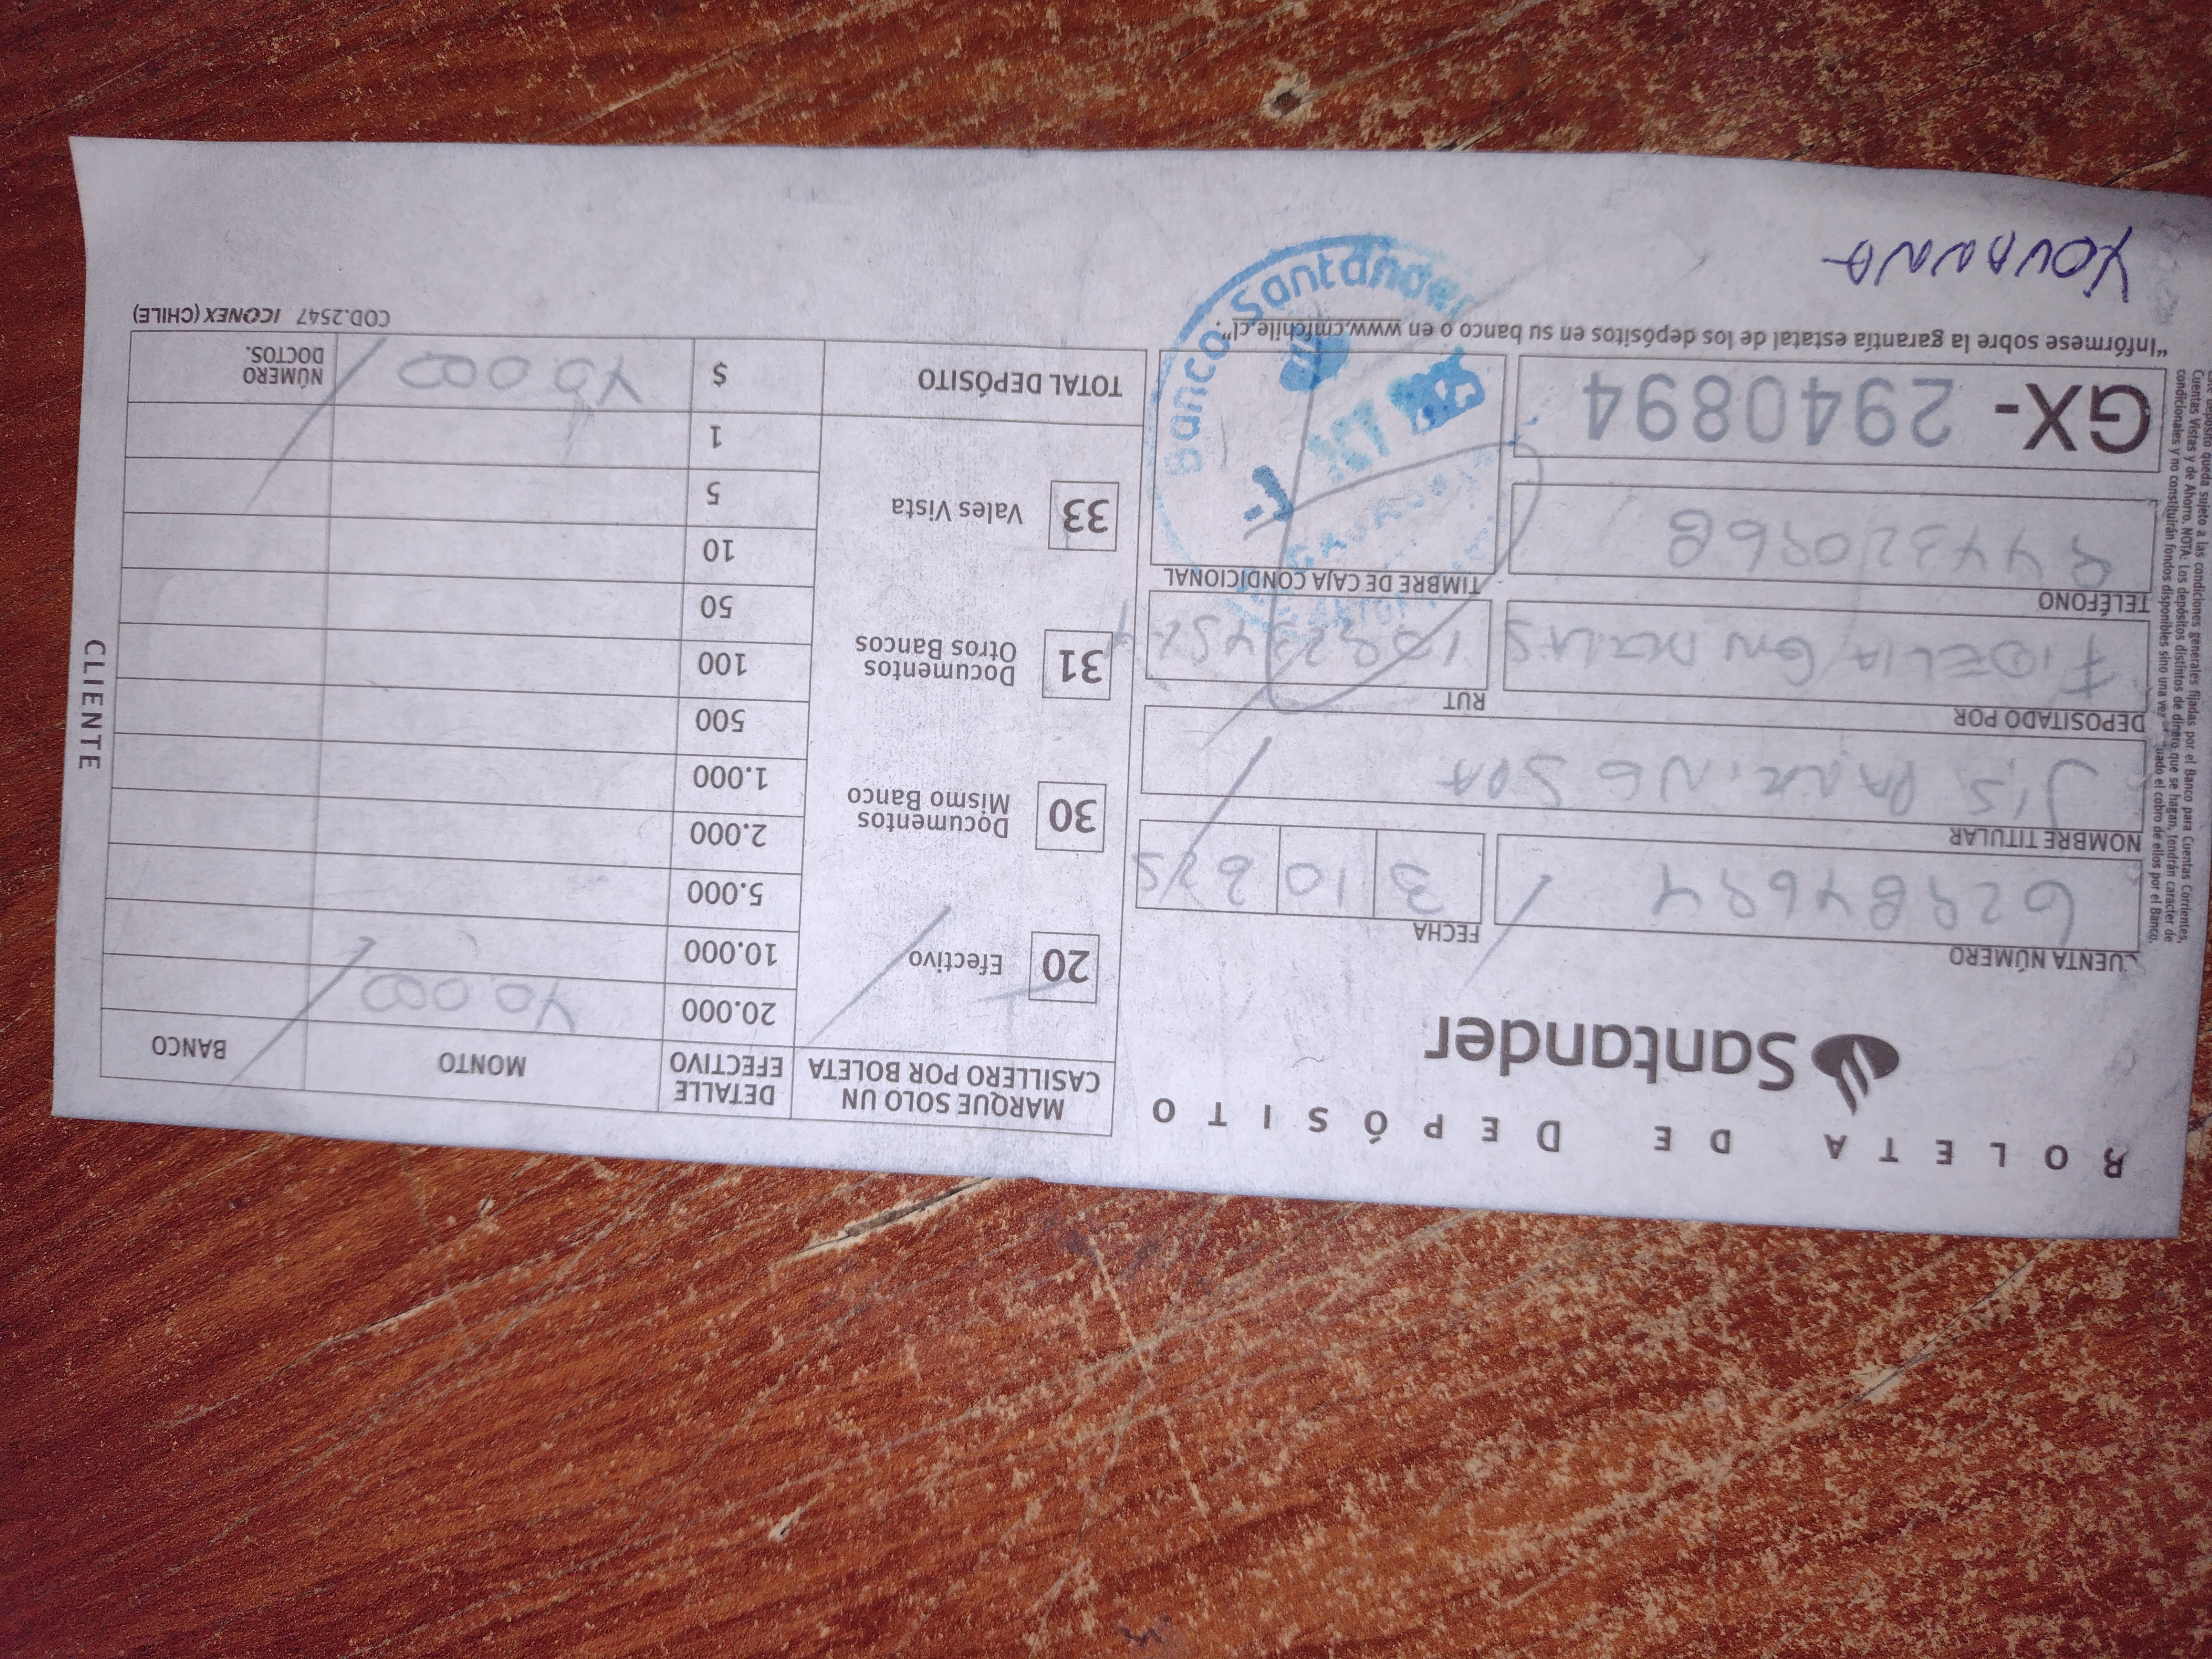 BOLETA DE DEPÓSITO
Santander
CUENTA NÚMERO
FECHA
3 10 2025
NOMBRE TITULAR
J.S PARKING SPA
DEPOSITADO POR
RUT
FIDELIA
TELÉFONO
TIMBRE DE CAJA CONDICIONAL
GX- 2940894
"Infórmese sobre la garantía estatal de los depósitos en su banco o en www.cmfchile.cl".
YOVANNA
Banco Santander
MARQUE SOLO UN CASILLERO POR BOLETA
DETALLE EFECTIVO
MONTO
BANCO
20 Efectivo
30 Documentos Mismo Banco
31 Documentos Otros Bancos
33 Vales Vista
20.000 40.000
10.000
5.000
2.000
1.000
500
100
50
10
5
1
TOTAL DEPÓSITO $ 40.000
NÚMERO DOCTOS.
COD.2547 ICONEX (CHILE)
CLIENTE
Cuentas Vistas y de Ahorro. NOTA: Los depósitos distintos de dinero que se hagan, tendrán carácter de
condicionales y no constituirán fondos disponibles sino una vez
el cobro de ellos por el Banco.